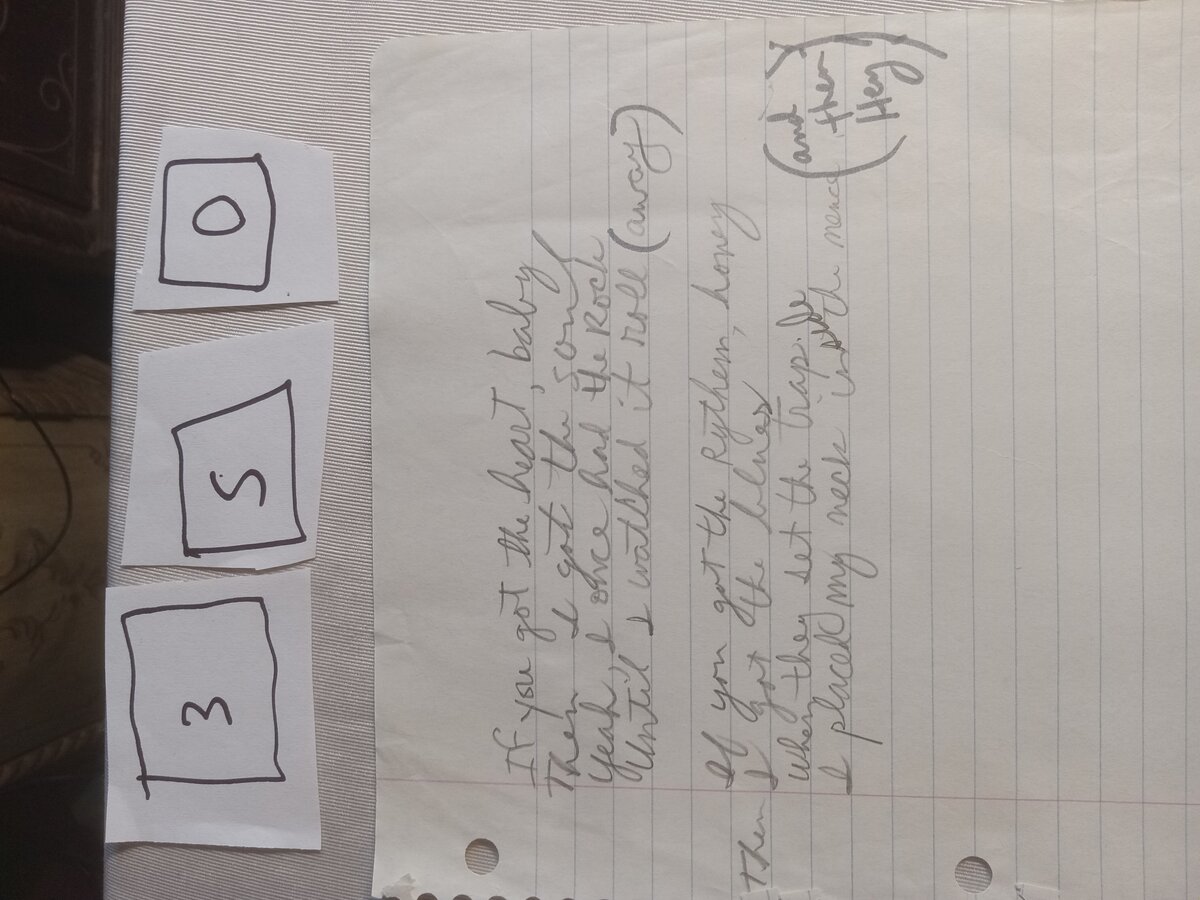 3 5 0
If you got the heart, baby
Then I got the soul
Yeah, I once had the Rock
Until I watched it roll (away)
If you got the Rythem, honey
Then I got the blues
When they set the trap
I placed my neck the
(and then)
(Hey)